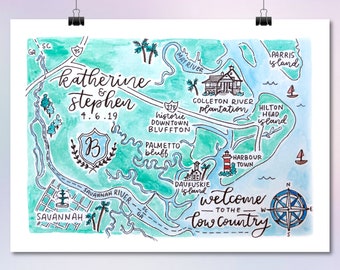 GA
SC
95
MAY RIVER
PARRIS
ISLAND
katherine
&
stephen
4.6.19
B
278
historic
DOWNTOWN
BLUFFTON
COLLETON RIVER
plantation
HILTON
HEAD
island
PALMETTO
bluff
HARBOUR
TOWN
DAUFUSKIE
island
SAVANNAH RIVER
SAVANNAH
welcome
TO THE
low country